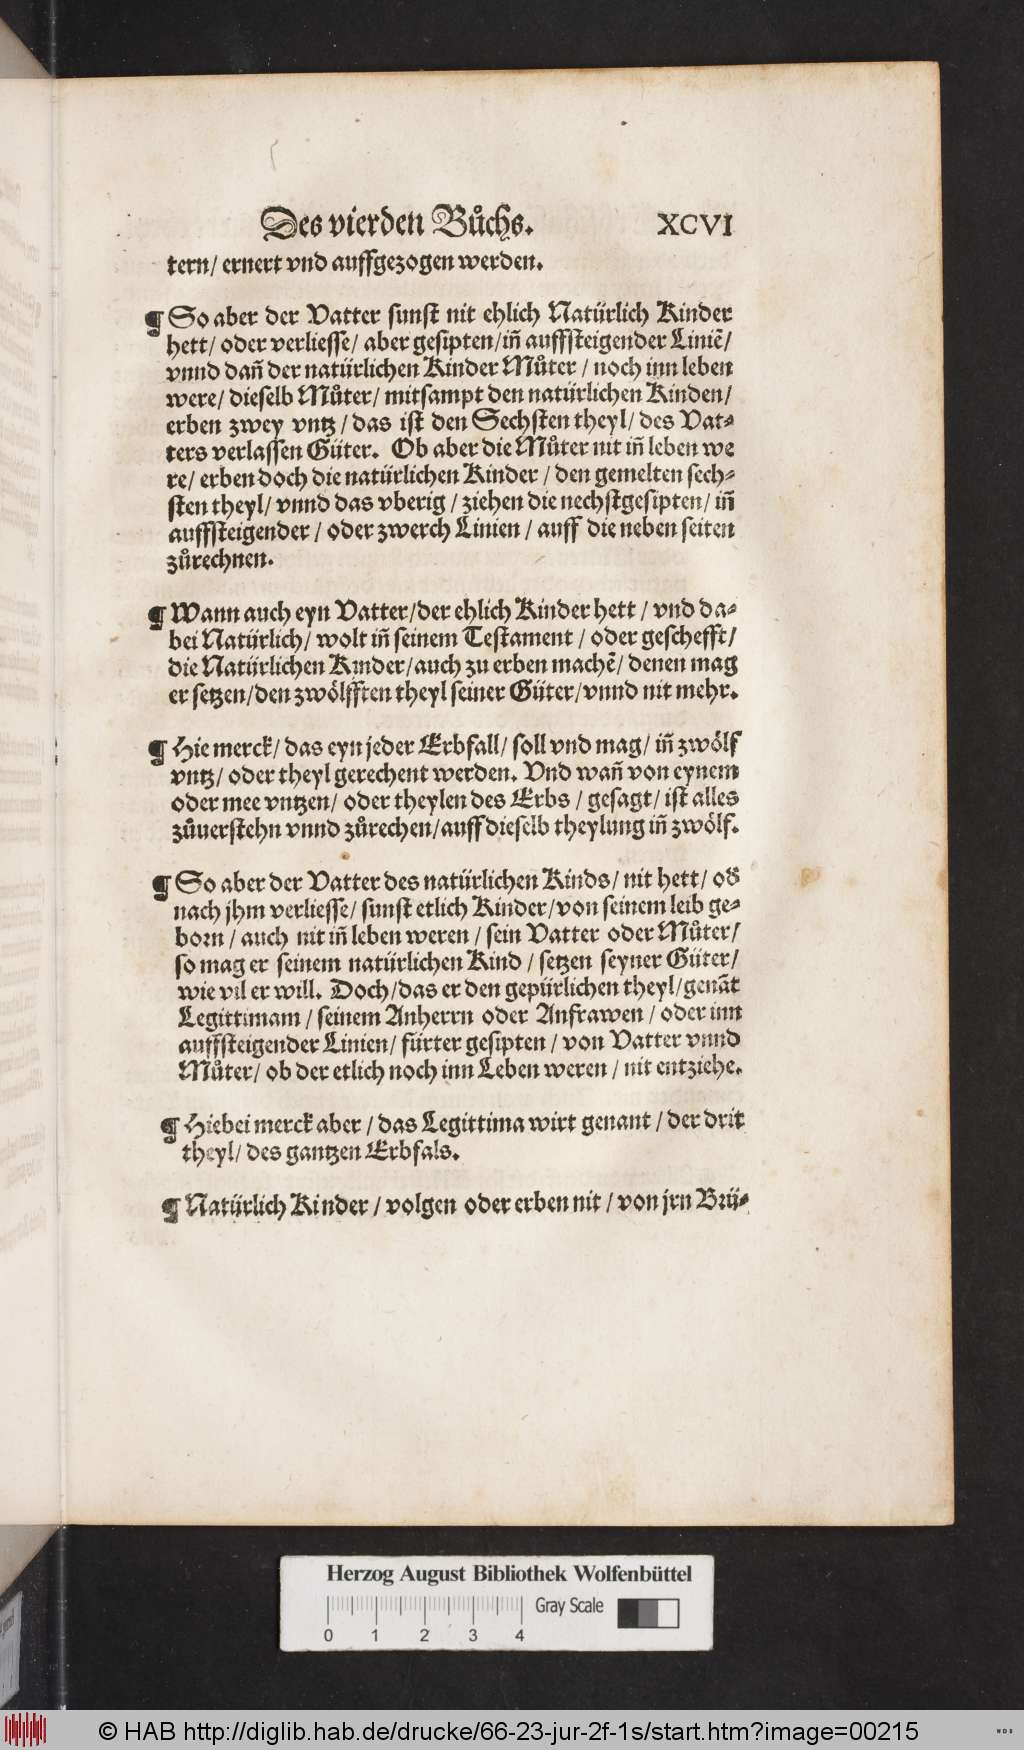 Des vierden Bůchs. XCVI
tern/ ernert vnd auffgezogen werden.
¶ So aber der Vatter sunst nit ehlich Natürlich Kinder
hett/ oder verliesse/ aber gesipten/ iñ auffsteigender Liniẽ/
vnnd dañ der natürlichen Kinder Můter / noch inn leben
were/ dieselb Můter/ mitsampt den natürlichen Kinden/
erben zwey vntz / das ist den Sechsten theyl/ des Vat-
ters verlassen Güter. Ob aber die Můter nit iñ leben we
re/ erben doch die natürlichen Kinder / den gemelten sech-
sten theyl/ vnnd das vberig / ziehen die nechstgesipten/ iñ
auffsteigender / oder zwerch Linien / auff die neben seiten
zůrechnen.
¶ Wann auch eyn Vatter/ der ehlich Kinder hett / vnd da-
bei Natürlich/ wolt iñ seinem Testament / oder geschefft/
die Natürlichen Kinder/ auch zu erben machẽ/ denen mag
er setzen/ den zwölfften theyl seiner Güter/ vnnd nit mehr.
¶ Hie merck/ das eyn jeder Erbfall/ soll vnd mag/ iñ zwölf
vntz/ oder theyl gerechent werden. Vnd wañ von eynem
oder mee vntzen/ oder theylen des Erbs / gesagt/ ist alles
zůuerstehn vnnd zůrechen/ auff dieselb theylung iñ zwölf.
¶ So aber der Vatter des natürlichen Kinds/ nit hett/ od̕
nach jhm verliesse/ sunst etlich Kinder/ von seinem leib ge-
born / auch nit iñ leben weren / sein Vatter oder Můter/
so mag er seinem natürlichen Kind / setzen seyner Güter/
wie vil er will. Doch/ das er den gepürlichen theyl/ genãt
Legittimam / seinem Anherrn oder Anfrawen / oder inn
auffsteigender Linien/ fürter gesipten / von Vatter vnnd
Můter/ ob der etlich noch inn Leben weren / nit entziehe.
¶ Hiebei merck aber / das Legittima wirt genant / der drit
theyl/ des gantzen Erbfals.
¶ Natürlich Kinder / volgen oder erben nit / von jrn Brü-
Herzog August Bibliothek Wolfenbüttel
Gray Scale
0 1 2 3 4
© HAB http://diglib.hab.de/drucke/66-23-jur-2f-1s/start.htm?image=00215